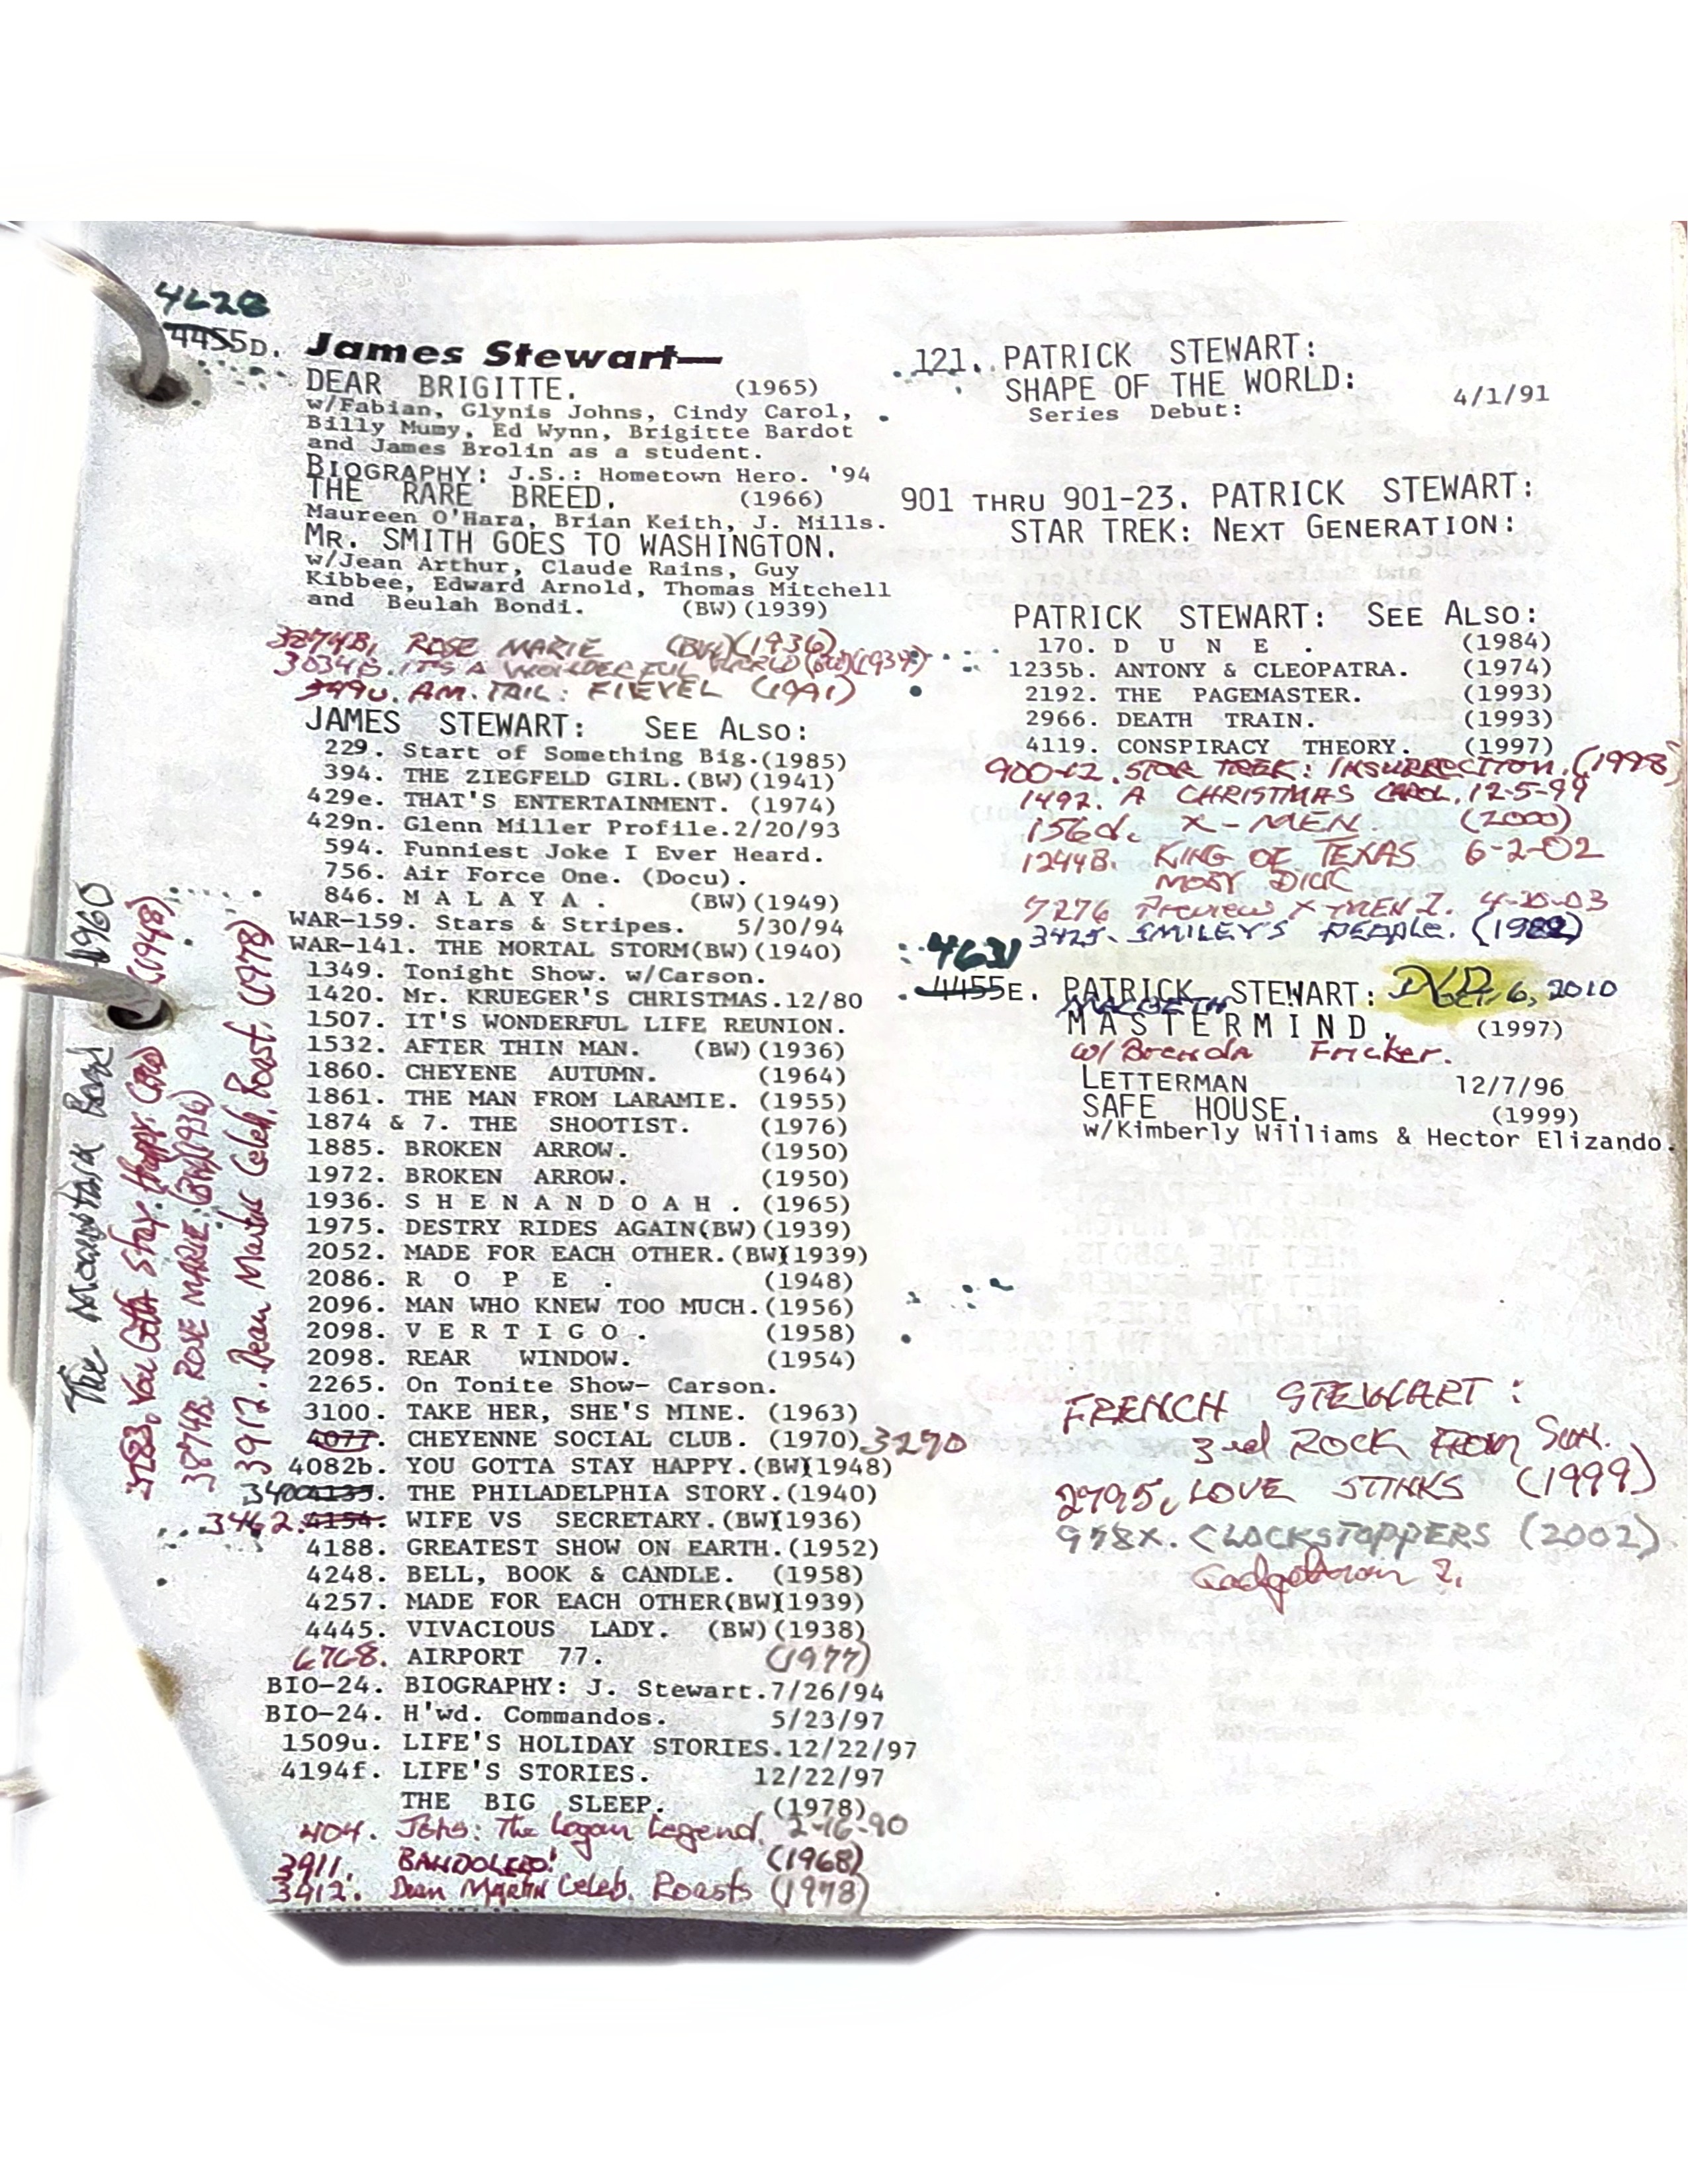 4628
4455D. James Stewart—
DEAR BRIGITTE. (1965)
w/Fabian, Glynis Johns, Cindy Carol,
Billy Mumy, Ed Wynn, Brigitte Bardot
and James Brolin as a student.
BIOGRAPHY: J.S.: Hometown Hero. '94
THE RARE BREED. (1966)
Maureen O'Hara, Brian Keith, J. Mills.
MR. SMITH GOES TO WASHINGTON.
w/Jean Arthur, Claude Rains, Guy
Kibbee, Edward Arnold, Thomas Mitchell
and Beulah Bondi. (BW)(1939)
3874B. ROSE MARIE (BW)(1936)
3034B. IT'S A WONDERFUL WORLD (BW)(1939)
349U. AM. TAIL: FIEVEL (1991)
JAMES STEWART: SEE ALSO:
229. Start of Something Big.(1985)
394. THE ZIEGFELD GIRL.(BW)(1941)
429e. THAT'S ENTERTAINMENT. (1974)
429n. Glenn Miller Profile.2/20/93
594. Funniest Joke I Ever Heard.
756. Air Force One. (Docu).
846. M A L A Y A . (BW)(1949)
WAR-159. Stars & Stripes. 5/30/94
WAR-141. THE MORTAL STORM(BW)(1940)
1349. Tonight Show. w/Carson.
1420. Mr. KRUEGER'S CHRISTMAS.12/80
1507. IT'S WONDERFUL LIFE REUNION.
1532. AFTER THIN MAN. (BW)(1936)
1860. CHEYENE AUTUMN. (1964)
1861. THE MAN FROM LARAMIE. (1955)
1874 & 7. THE SHOOTIST. (1976)
1885. BROKEN ARROW. (1950)
1972. BROKEN ARROW. (1950)
1936. S H E N A N D O A H . (1965)
1975. DESTRY RIDES AGAIN(BW)(1939)
2052. MADE FOR EACH OTHER.(BW)(1939)
2086. R O P E . (1948)
2096. MAN WHO KNEW TOO MUCH.(1956)
2098. V E R T I G O . (1958)
2098. REAR WINDOW. (1954)
2265. On Tonite Show- Carson.
3100. TAKE HER, SHE'S MINE. (1963)
4077. CHEYENNE SOCIAL CLUB. (1970) 3270
4082b. YOU GOTTA STAY HAPPY.(BW)(1948)
340 4135. THE PHILADELPHIA STORY.(1940)
3462. 4154. WIFE VS SECRETARY.(BW)(1936)
4188. GREATEST SHOW ON EARTH.(1952)
4248. BELL, BOOK & CANDLE. (1958)
4257. MADE FOR EACH OTHER(BW)(1939)
4445. VIVACIOUS LADY. (BW)(1938)
6768. AIRPORT 77. (1977)
BIO-24. BIOGRAPHY: J. Stewart.7/26/94
BIO-24. H'wd. Commandos. 5/23/97
1509u. LIFE'S HOLIDAY STORIES.12/22/97
4194f. LIFE'S STORIES. 12/22/97
THE BIG SLEEP. (1978)
404. Josh: The Logan Legend. 2-16-90
3911. BANDOLERO! (1968)
3912. Dean Martin Celeb. Roasts (1978)
The Mountain Road 1960
3783. You Gotta Stay Happy (BW) (1948)
3874B ROSE MARIE (BW)(1936)
3912. Dean Martin Celeb. Roast. (1978)
121. PATRICK STEWART:
SHAPE OF THE WORLD:
Series Debut: 4/1/91
901 THRU 901-23. PATRICK STEWART:
STAR TREK: NEXT GENERATION:
PATRICK STEWART: SEE ALSO:
170. D U N E . (1984)
1235b. ANTONY & CLEOPATRA. (1974)
2192. THE PAGEMASTER. (1993)
2966. DEATH TRAIN. (1993)
4119. CONSPIRACY THEORY. (1997)
900-12. STAR TREK: INSURRECTION. (1998)
1492. A CHRISTMAS CAROL. 12-5-99
156d. X-MEN (2000)
1244B. KING OF TEXAS 6-2-02
MOBY DICK
7276 Preview X-MEN 2. 4-20-03
3425. SMILEY'S PEOPLE. (1982)
4631
4455E. PATRICK STEWART: DVD
MACBETH OCT. 6, 2010
M A S T E R M I N D . (1997)
w/ Brenda Fricker.
LETTERMAN 12/7/96
SAFE HOUSE. (1999)
w/Kimberly Williams & Hector Elizando.
FRENCH STEWART:
3rd ROCK FROM SUN.
2795. LOVE STINKS (1999)
978X. CLOCKSTOPPERS (2002)
Gadgetman 2.